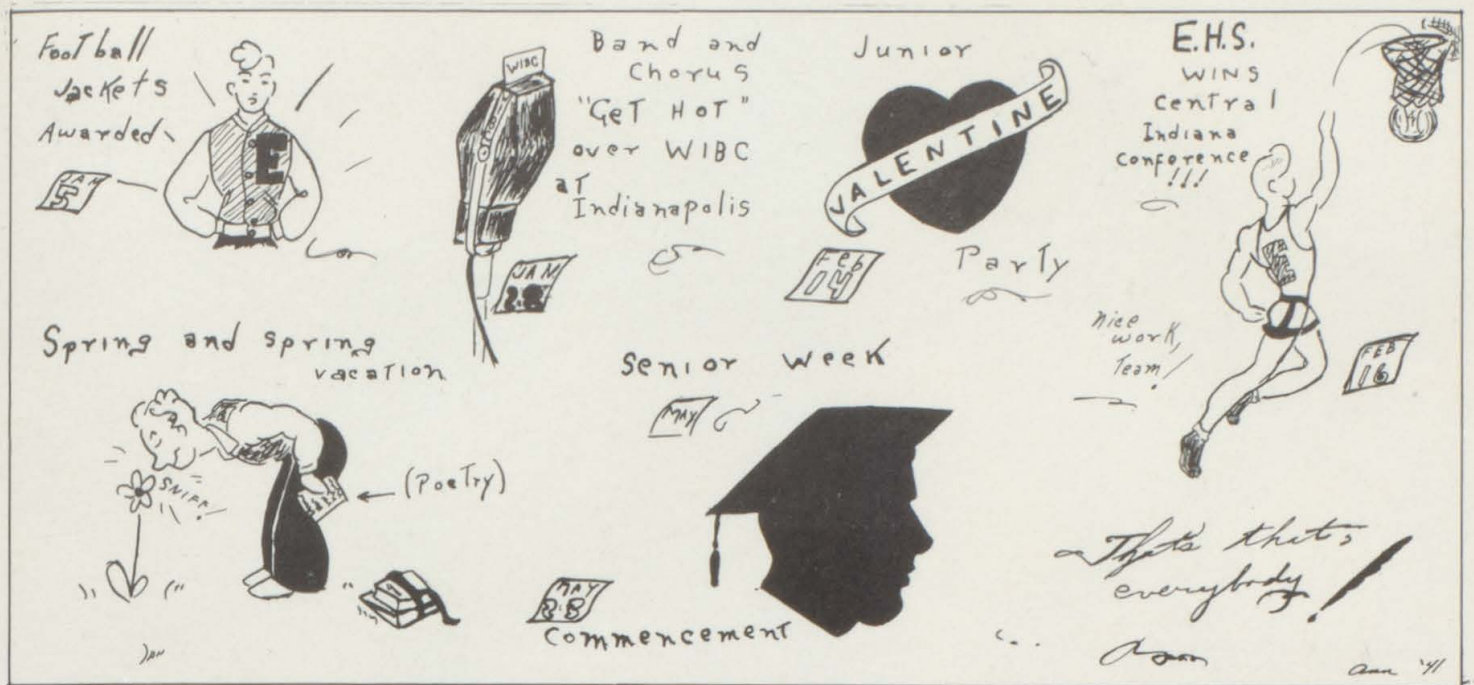 Football
Jackets
Awarded
JAN
5
E
WIBC
Band and
Chorus
"GeT HOT"
over WIBC
aT
Indianapolis
JAN
28
Junior
VALENTINE
Party
Feb
14
E.H.S.
WINS
Central
Indiana
Conference
!!!
nice
work,
Team!
FEB
16
Spring and spring
vacation
SNIFF!
(Poetry)
Senior Week
MAY
MAY
28
Commencement
That's that,
everybody!
JAN
'41